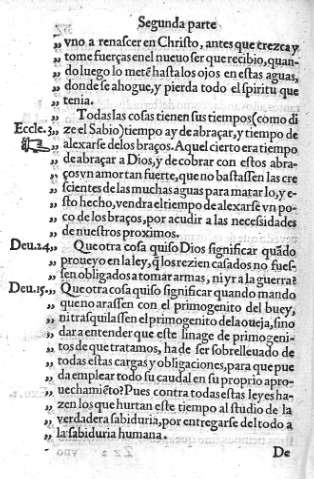 Segunda parte
„ vno a renascer en Christo, antes que trezca y
„ tome fuerças en el nueuo ser que recibio, quan-
„ do luego lo metē hasta los ojos en estas aguas,
„ donde se ahogue, y pierda todo el spiritu que
„ tenia.
„ Todas las cosas tienen sus tiempos (como di
Eccle. 3 „ ze el Sabio) tiempo ay de abraçar, y tiempo de
„ alexarse de los braços. Aquel cierto era tiempo
„ de abraçar a Dios, y de cobrar con estos abra-
„ ços vn amor tan fuerte, que no bastassen las cre
„ scientes de las muchas aguas para matarlo, y e-
„ sto hecho, vendra el tiempo de alexarse vn po-
„ co de los braços, por acudir a las necessidades
„ de nuestros proximos.
Deu. 24 „ Que otra cosa quiso Dios significar quādo
„ proueyo en la ley, q̃ los rezien casados no fues-
„ sen obligados a tomar armas, ni yr a la guerra?
Deu. 15. „ Que otra cosa quiso significar quando mando
„ que no arassen con el primogenito del buey,
„ ni trasquilassen el primogenito de la oueja, sino
„ dar a entender que este linage de primogeni-
„ tos de que tratamos, ha de ser sobrelleuado de
„ todas estas cargas y obligaciones, para que pue
„ da emplear todo su caudal en su proprio apro-
„ uechamiēto? Pues contra todas estas leyes ha-
„ zen los que hurtan este tiempo al studio de la
„ verdadera sabiduria, por entregarse del todo a
„ la sabiduria humana.
De